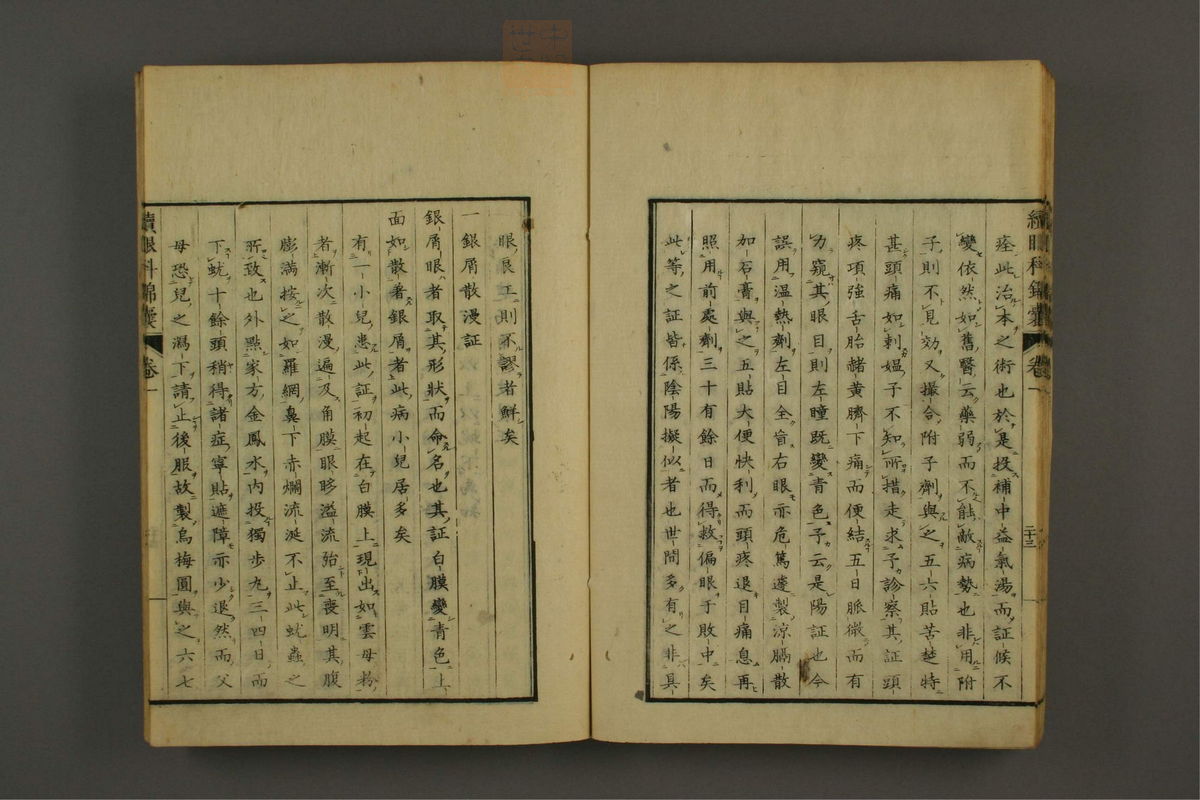 續眼科錦囊 卷一 二十三
痊此治本之術也於是投補中益氣湯而証候不
變依然如舊醫云藥弱而不能敵病勢也非用附
子則不見効又撮合附子劑與之五六貼苦楚特
甚頭痛如刺媼子不知所措走求予診察其証頭
疼項強舌胎赭黄臍下痛而便結五日脈微而有
力窺其眼目則左瞳既變青色予云是陽証也今
誤用温熱劑左目全盲右眼亦危篤遽製涼膈散
加石膏與之五貼大便快利而頭疼退目痛息再
照用前處劑三十有餘日而得救偏眼于敗中矣
此等之証皆係陰陽擬似者也世間多有之非具
眼眼工則不謬者鮮矣
一銀屑散漫証
銀屑眼者取其形狀而命名也其証白膜變青色上
面如散著銀屑者此病小兒居多矣
有一小兒患此証初起在白膜上現出如雲母粉
者漸次散漫遍及角膜眼眵溢流殆至喪明其腹
膨滿按之如羅網鼻下赤爛流涎不止此蚘蟲之
所致也外點家方金鳳水内投獨歩丸三四日而
下蚘十餘頭稍得諸症寧貼遮障亦少退然而父
母恐兒之瀉下請止後服故製烏梅圓與之六七
續眼科錦囊 卷一